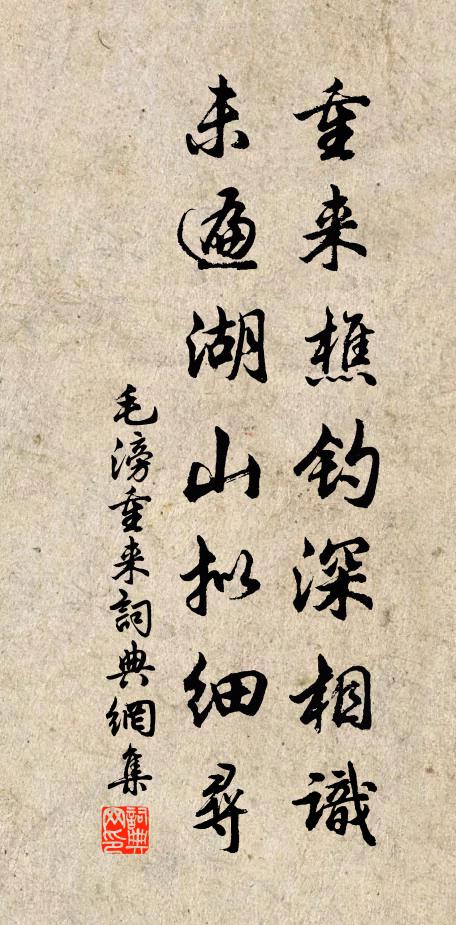 重来樵钓深相識
未遍湖山拟细尋
毛滂重来詞典網集
詞典网印